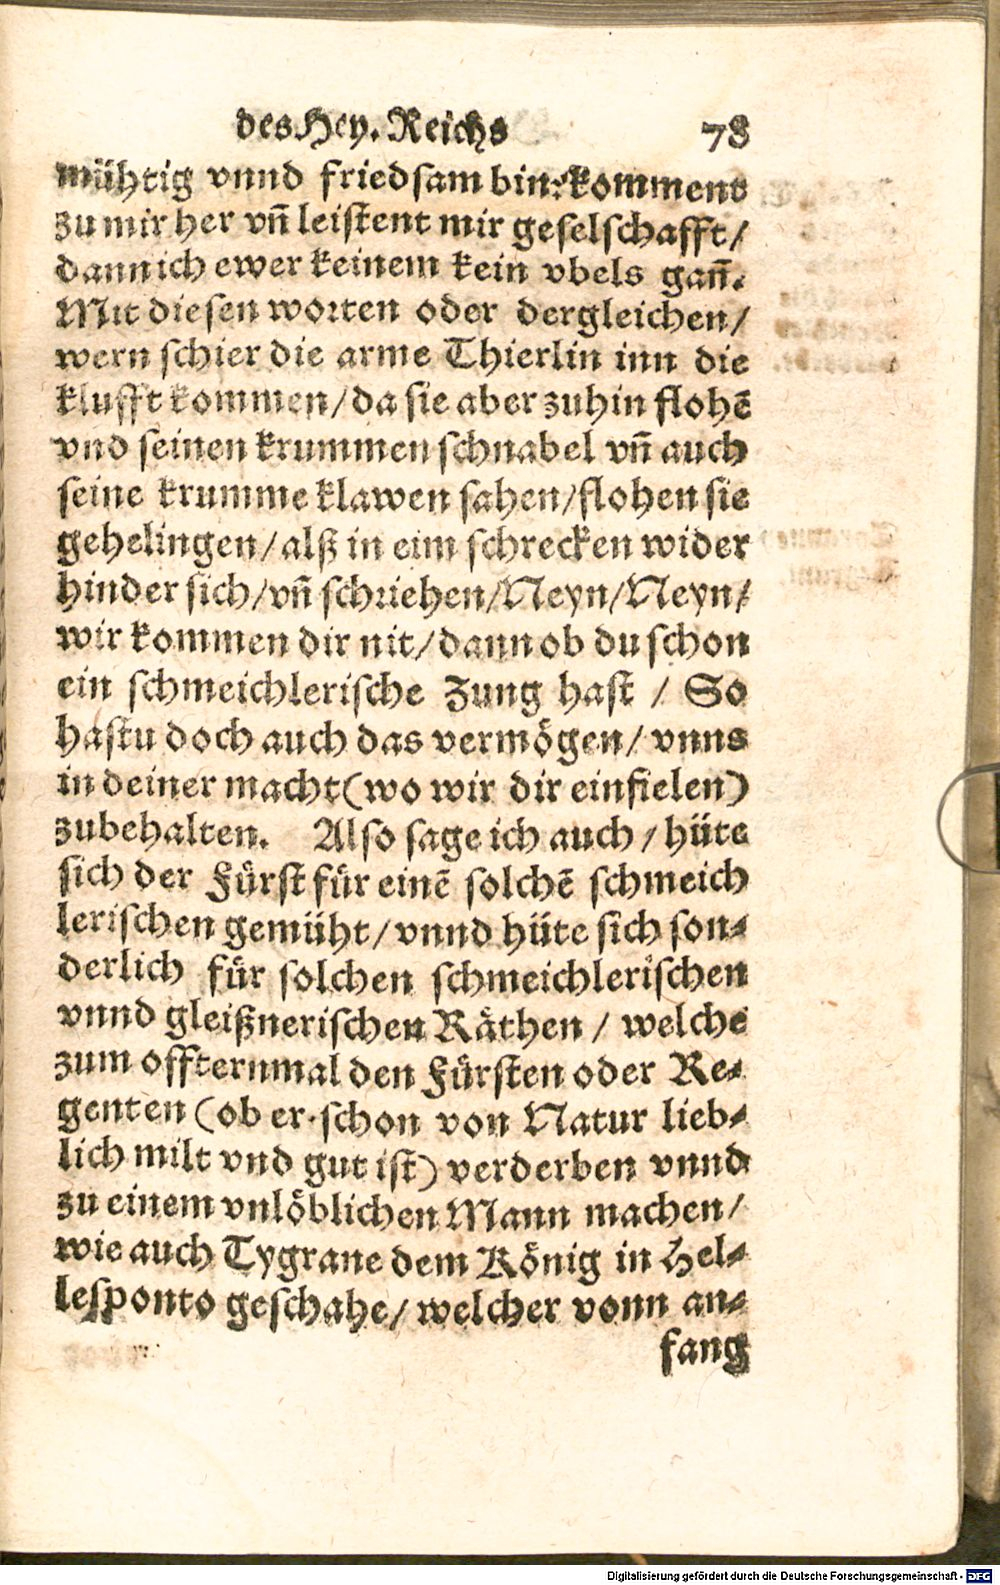 des Hey. Reichs 78
mühtig vnnd friedsam bin: komment
zu mir her vn̄ leistent mir geselschafft/
dann ich ewer keinem kein vbels gan̄.
Mit diesen worten oder dergleichen/
wern schier die arme Thierlin inn die
klufft kommen/da sie aber zuhin flohē
vnd seinen krummen schnabel vn̄ auch
seine krumme klawen sahen/flohen sie
gehelingen/alß in eim schrecken wider
hinder sich/vn̄ schriehen/Neyn/Neyn/
wir kommen dir nit/dann ob du schon
ein schmeichlerische Zung hast / So
hastu doch auch das vermögen/ vnns
in deiner macht(wo wir dir einfielen)
zubehalten. Also sage ich auch/ hüte
sich der Fürst für einē solchē schmeich
lerischen gemüht/ vnnd hüte sich son-
derlich für solchen schmeichlerischen
vnnd gleißnerischen Räthen / welche
zum offternmal den Fürsten oder Re-
genten (ob er schon von Natur lieb-
lich milt vnd gut ist) verderben vnnd
zu einem vnlöblichen Mann machen/
wie auch Tygrane dem König in Hel-
lesponto geschahe/ welcher vonn an-
fang
Digitalisierung gefördert durch die Deutsche Forschungsgemeinschaft - DFG